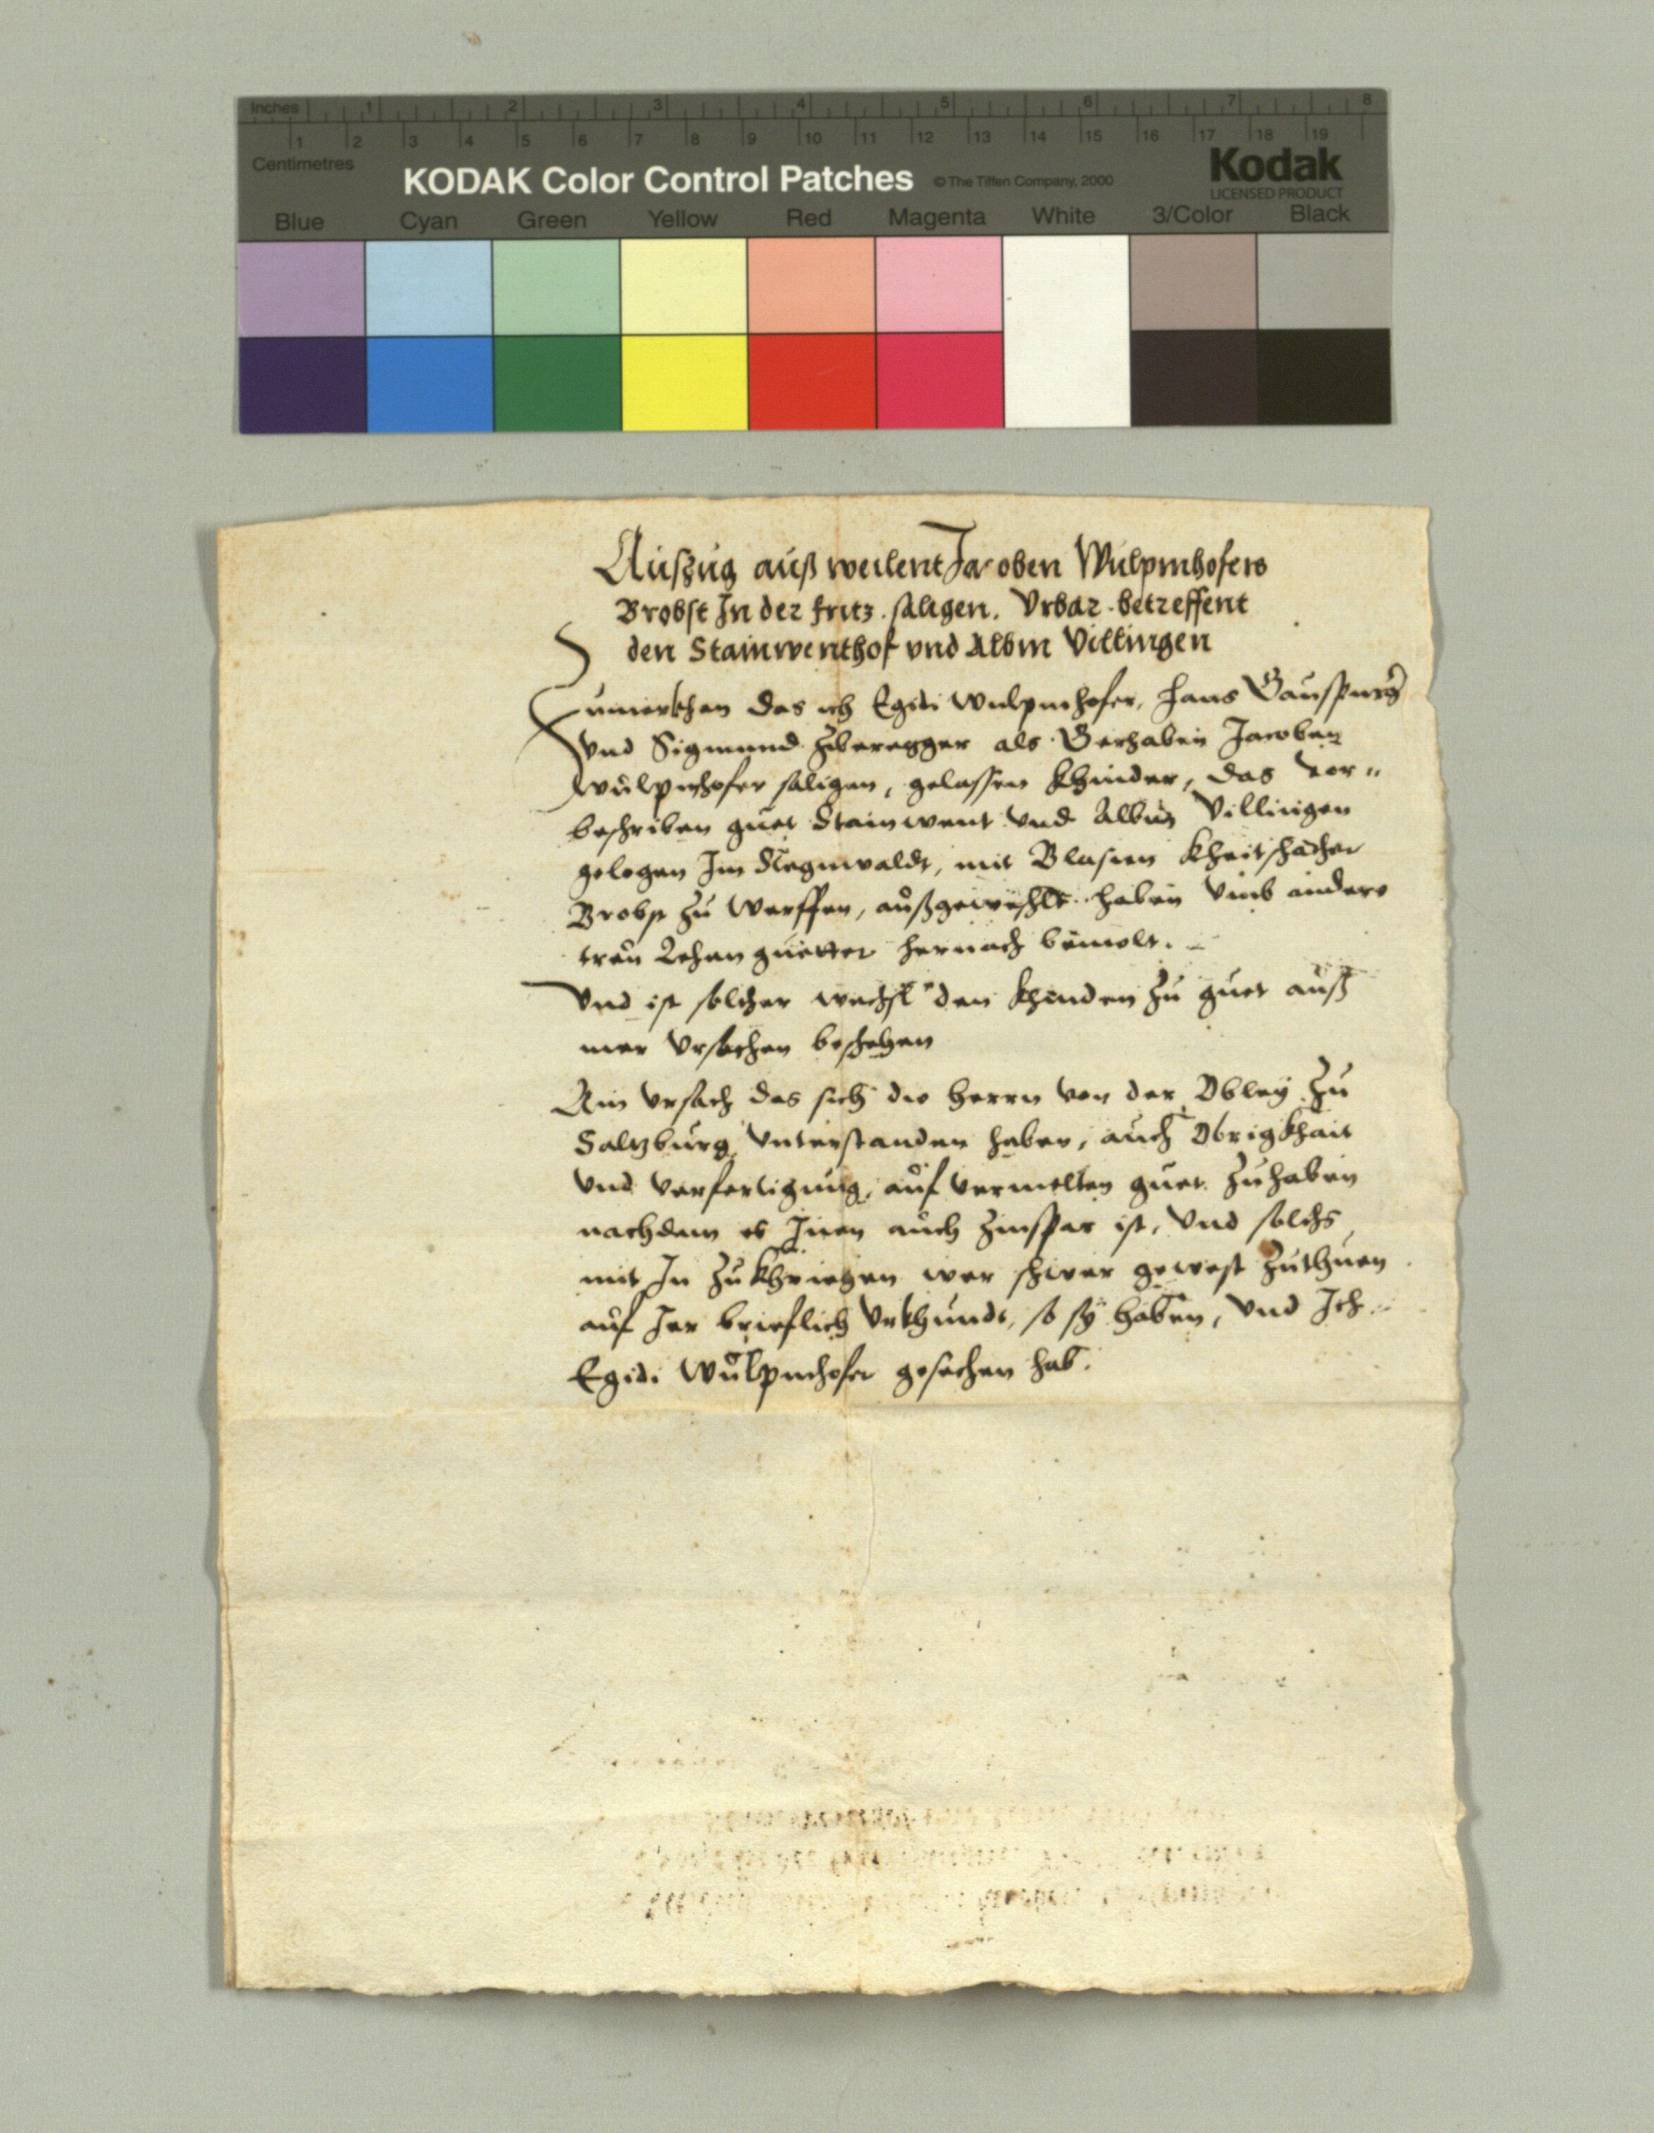 Inches 1 2 3 4 5 6 7 8
1 2 3 4 5 6 7 8 9 10 11 12 13 14 15 16 17 18 19
Centimetres
KODAK Color Control Patches © The Tiffen Company, 2000
Kodak
LICENSED PRODUCT
Blue Cyan Green Yellow Red Magenta White 3/Color Black
Auszug auß weilent Jacoben Wulpmhofers
Brobst In der fritz saligen. Vrbar betreffent
den Stainwenthof vnd Albm Villingen
Zumerkhen das ich Egidi Wulpmhofer, Hans
vnd Sigmund Zberegger als Gerhaben Jacoben
Wulpmhofer saligen, gelassen Khinder, das vor„
beschriben guet Stainwent vnd Albm Villingen
gelegen Im Regnwaldt, mit Blasien
Brobst zu Werffen, außgewechslt haben vmb andere
Lehen guetter hernach bemelt.
Vnd ist solcher wechsl den Khinden zu guet auß
mer vrsachen beschehen
Ain vrsach das sich die herrn von der Obley zu
Saltzburg vnterstanden haben, auch Obrigkhait
vnd verfertigung, auf vermelten guet zuhaben
nachdem es Inen auch zinspar ist, vnd solchs
mit In zukhriegen wer schwer gewest zuthuen
auf Jer brieflich vrkhundt, so sy haben, vnd Ich
Egidi Wulpmhofer gesechen hab.